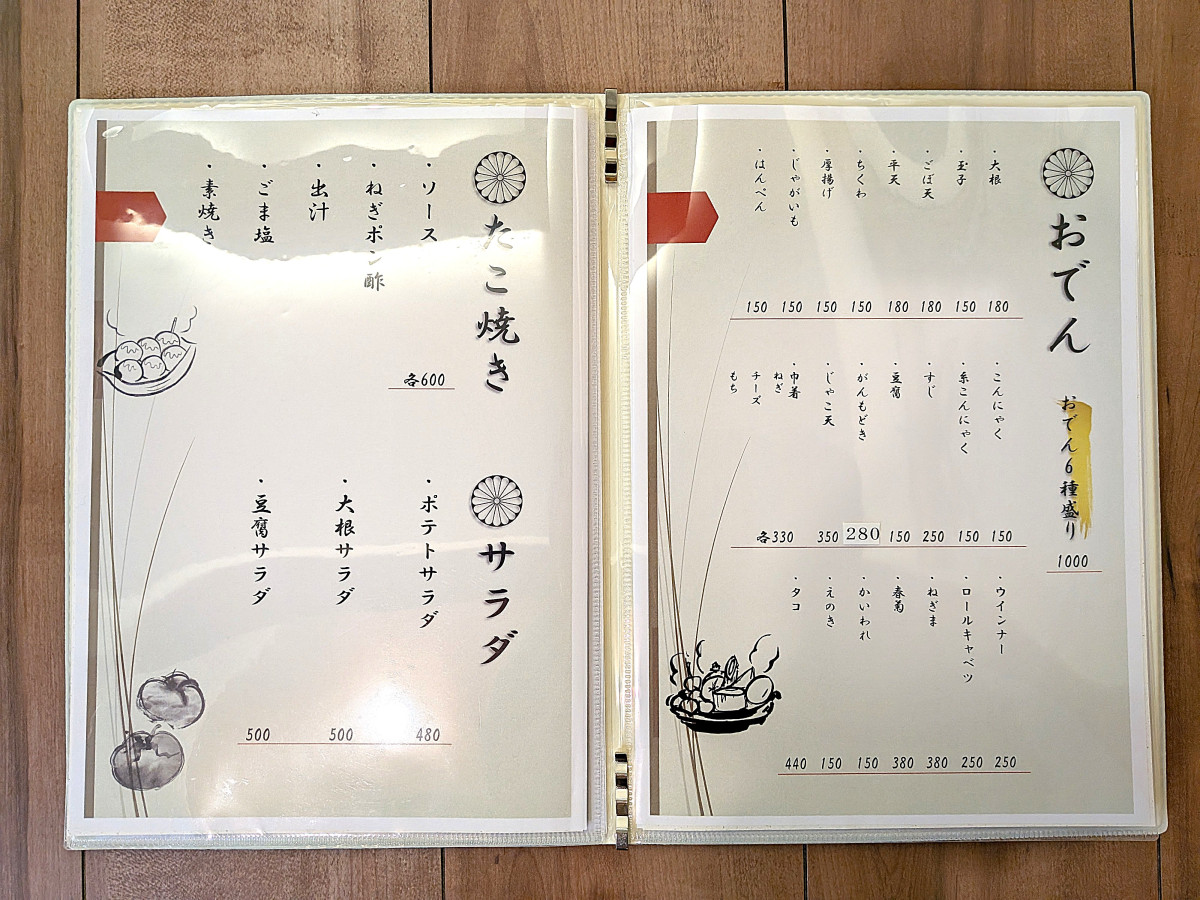 おでん
おでん6種盛り
1000
・大根
180
・玉子
150
・ごぼ天
180
・平天
180
・ちくわ
150
・厚揚げ
150
・じゃがいも
150
・はんぺん
150
・こんにゃく
150
・糸こんにゃく
150
・すじ
250
・豆腐
150
・がんもどき
280
・じゃこ天
350
・巾着
ねぎ
チーズ
もち
各330
・ウインナー
250
・ロールキャベツ
250
・ねぎま
380
・春菊
380
・かいわれ
150
・えのき
150
・タコ
440
たこ焼き
・ソース
・ねぎポン酢
・出汁
・ごま塩
・素焼き
各600
サラダ
・ポテトサラダ
480
・大根サラダ
500
・豆腐サラダ
500